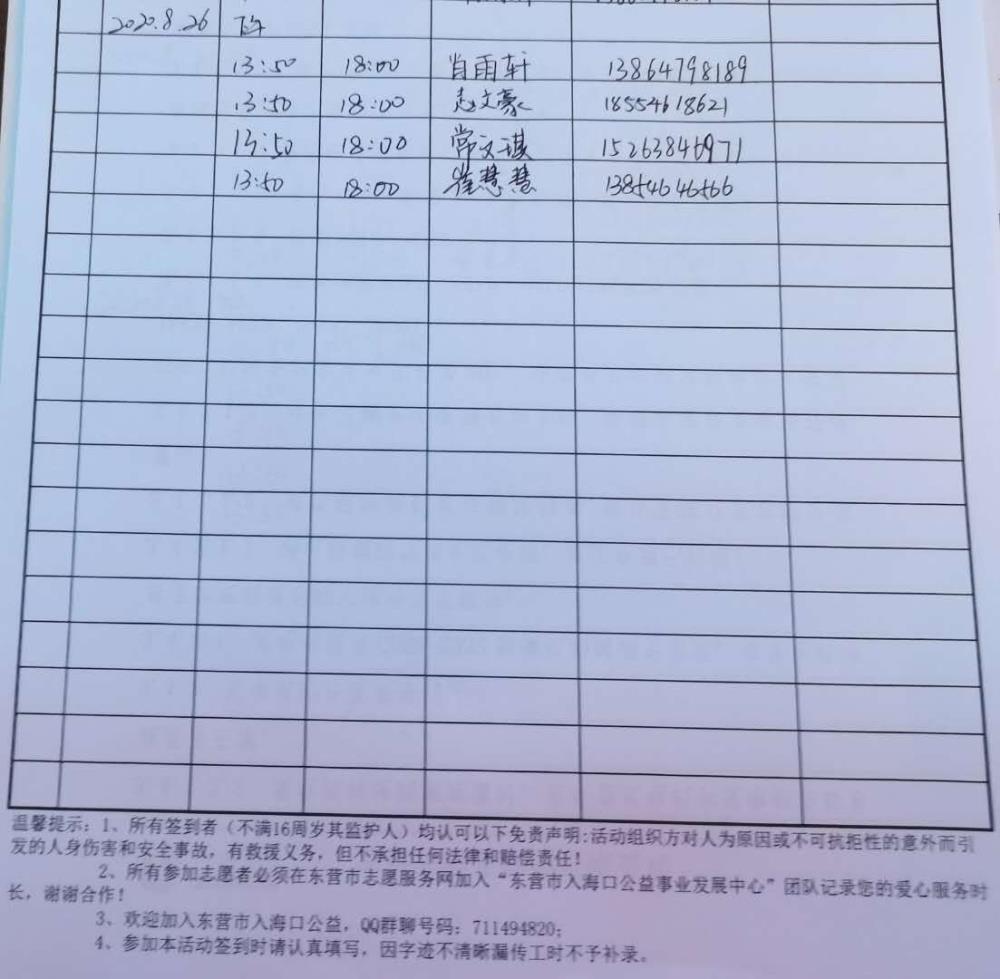 2020.8.26
13:50 18:00 肖雨轩 13864798189
13:50 18:00 赵文豪 18554618621
13:50 18:00 常文琪 15263846971
13:50 18:00 崔慧慧 13854646566
温馨提示：1、所有签到者（不满16周岁其监护人）均认可以下免责声明:活动组织方对人为原因或不可抗拒性的意外而引
发的人身伤害和安全事故，有救援义务，但不承担任何法律和赔偿责任！
2、所有参加志愿者必须在东营市志愿服务网加入“东营市入海口公益事业发展中心”团队记录您的爱心服务时
长，谢谢合作！
3、欢迎加入东营市入海口公益，QQ群聊号码：711494820；
4、参加本活动签到时请认真填写，因字迹不清晰漏传工时不予补录。